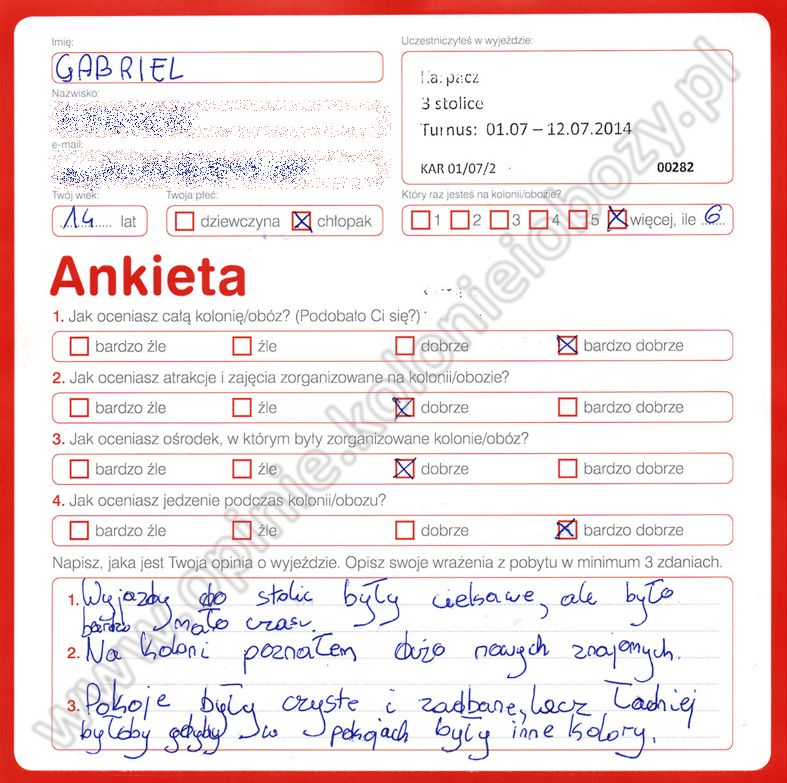 Imię:
GABRIEL
Nazwisko:
e-mail:
Twój wiek:
14 lat
Twoja płeć:
dziewczyna chłopak
Uczestniczyłeś w wyjeździe:
Karpacz
3 stolice
Turnus: 01.07 – 12.07.2014
KAR 01/07/2 00282
Który raz jesteś na kolonii/obozie?
1 2 3 4 5 więcej, ile 6
Ankieta
1. Jak oceniasz całą kolonię/obóz? (Podobało Ci się?)
bardzo źle źle dobrze bardzo dobrze
2. Jak oceniasz atrakcje i zajęcia zorganizowane na kolonii/obozie?
bardzo źle źle dobrze bardzo dobrze
3. Jak oceniasz ośrodek, w którym były zorganizowane kolonie/obóz?
bardzo źle źle dobrze bardzo dobrze
4. Jak oceniasz jedzenie podczas kolonii/obozu?
bardzo źle źle dobrze bardzo dobrze
Napisz, jaka jest Twoja opinia o wyjeździe. Opisz swoje wrażenia z pobytu w minimum 3 zdaniach.
1. Wyjazdy do stolic były ciekawe, ale było
bardzo mało czasu.
2. Na koloni poznałem dużo nowych znajomych.
3. Pokoje były czyste i zadbane, lecz ładniej
byłoby gdyby w pokojach były inne kolory.
www.opinie.kolonieiobozy.pl